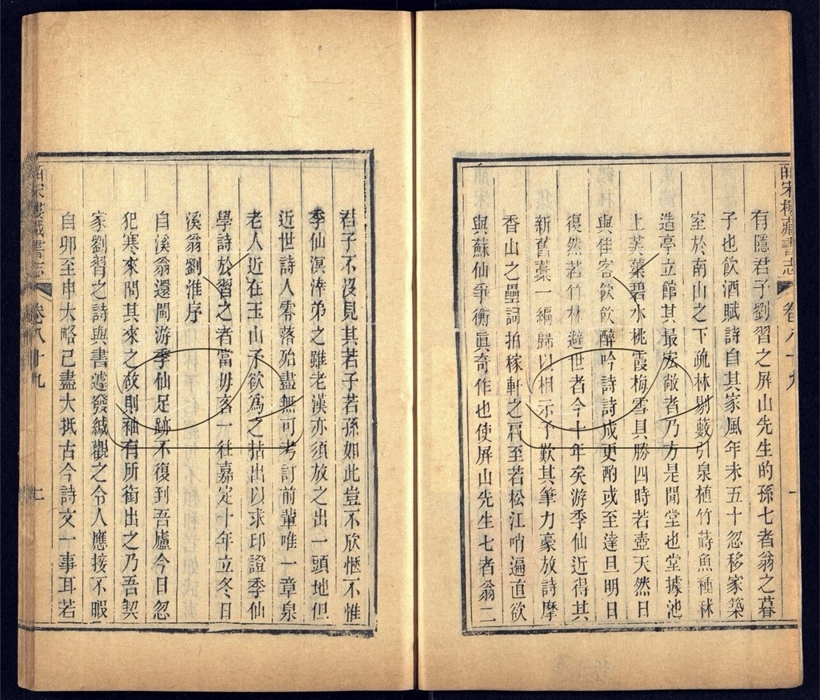 皕宋樓藏書志 卷八十九
有隱君子劉習之屏山先生的孫七者翁之暮
子也飲酒賦詩自其家風年未五十忽移家築
室於南山之下疏林剔藪引泉植竹蒔魚種秫
造亭立館其最宏敞者乃方是閒堂也堂據池
上芙蕖碧水桃霞梅雪具勝四時若壺天然日
與佳客飲飲醉吟詩詩成更酌或至達旦明日
復然若竹林避世者今十年矣游季仙近得其
新舊藁一編歸以相示予歎其筆力豪放詩摩
香山之壘詞拍稼軒之肩至若松江哨遍直欲
與蘇仙爭衡眞奇作也使屏山先生七者翁二
君子不沒見其若子若孫如此豈不欣愜不惟
季仙溟涬弟之雖老漢亦須放之出一頭地但
近世詩人零落殆盡無可考訂前輩唯一章泉
老人近在玉山予欲爲之拈出以求印證季仙
學詩於習之者當毋吝一往嘉定十年立冬日
溪翁劉淮序
自溪翁還閩游季仙足跡不復到吾廬今日忽
犯寒來問其來之故則袖有所銜出之乃吾契
家劉習之詩與書遽發緘觀之令人應接不暇
自卯至申大略已盡大抵古今詩文一事耳若
皕宋樓藏書志 卷八十九 七